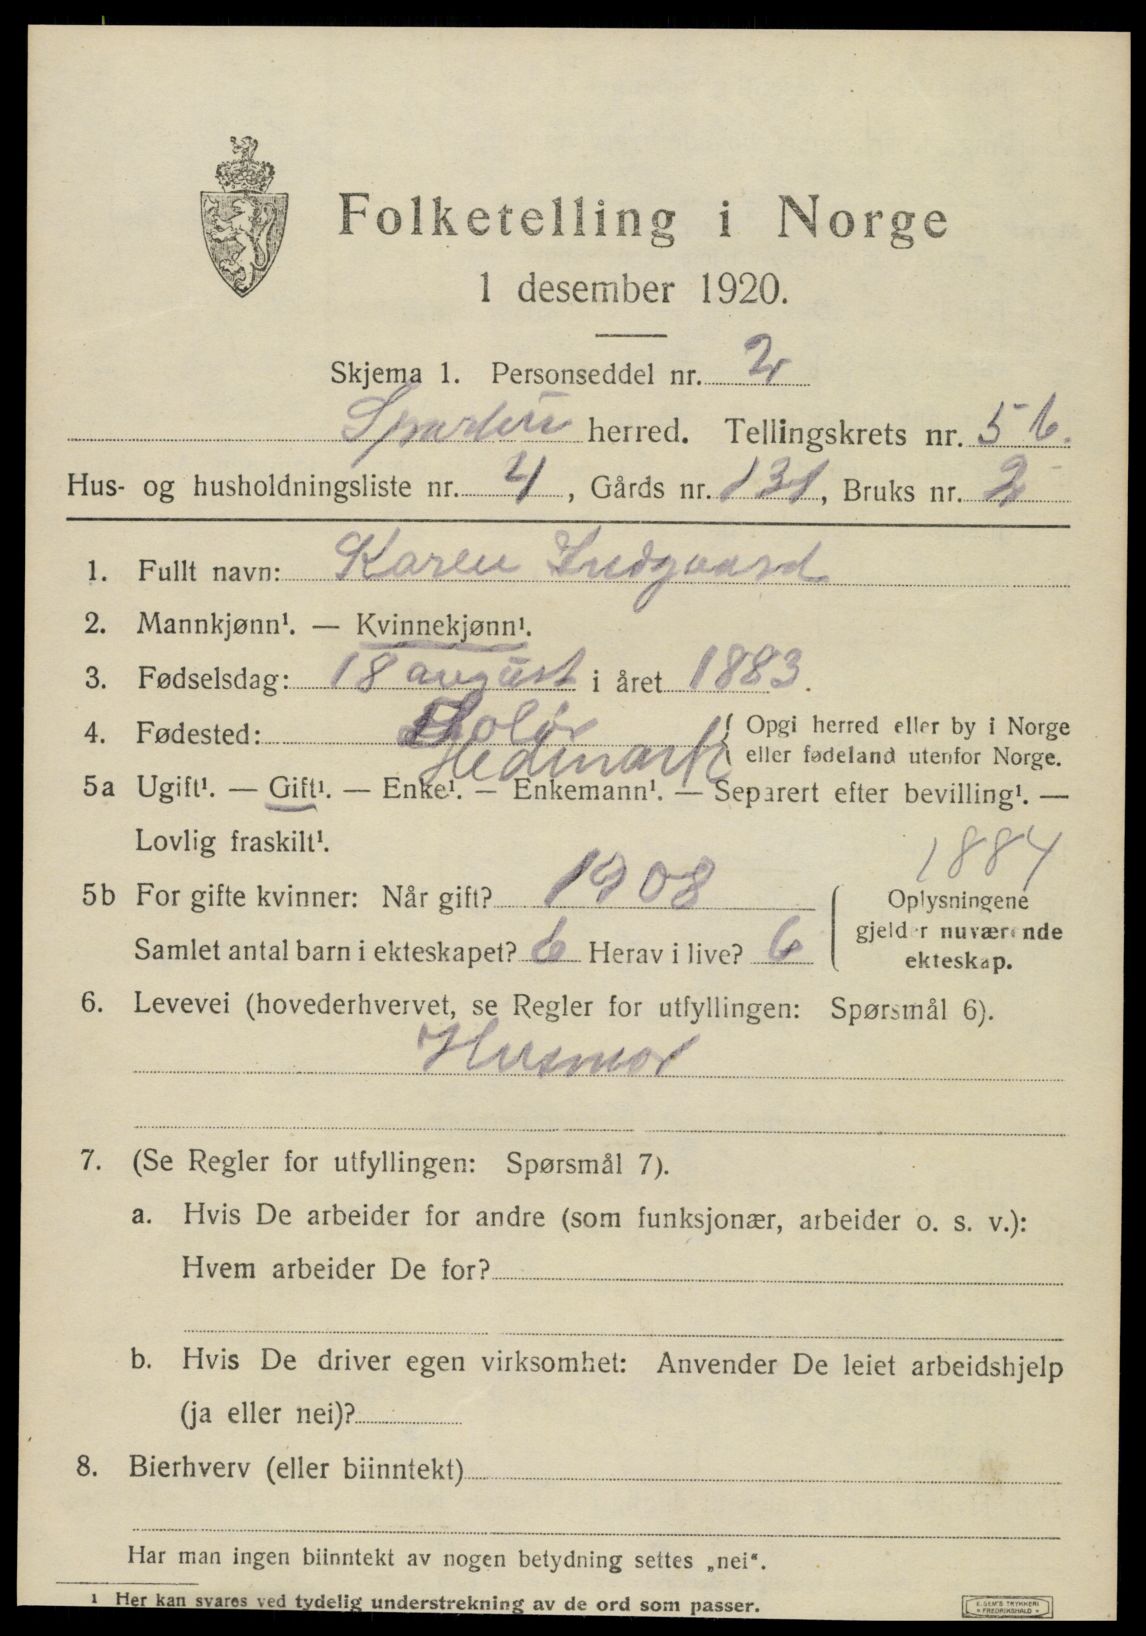 Folketelling i Norge
1 desember 1920.
Skjema 1. Personseddel nr. 2
herred. Tellingskrets nr. 5 b.
Hus- og husholdningsliste nr. 4, Gårds nr. 131, Bruks nr. 2
1. Fullt navn: Karen
2. Mannkjønn¹. — Kvinnekjønn¹.
3. Fødselsdag: 18 august i året 1883.
4. Fødested: Solør { Opgi herred eller by i Norge
Hedmark eller fødeland utenfor Norge.
5a Ugift¹. — Gift¹. — Enke¹. — Enkemann¹. — Separert efter bevilling¹. —
Lovlig fraskilt¹.
1884
5b For gifte kvinner: Når gift? 1908 { Oplysningene
gjelder nuværende
Samlet antal barn i ekteskapet? 6 Herav i live? 6
ekteskap.
6. Levevei (hovederhvervet, se Regler for utfyllingen: Spørsmål 6).
Husmor
7. (Se Regler for utfyllingen: Spørsmål 7).
a. Hvis De arbeider for andre (som funksjonær, arbeider o. s. v.):
Hvem arbeider De for?
b. Hvis De driver egen virksomhet: Anvender De leiet arbeidshjelp
(ja eller nei)?
8. Bierhverv (eller biinntekt)
Har man ingen biinntekt av nogen betydning settes „nei“.
¹ Her kan svares ved tydelig understrekning av de ord som passer.
E. SEM'S TRYKKERI
• FREDRIKSHALD •